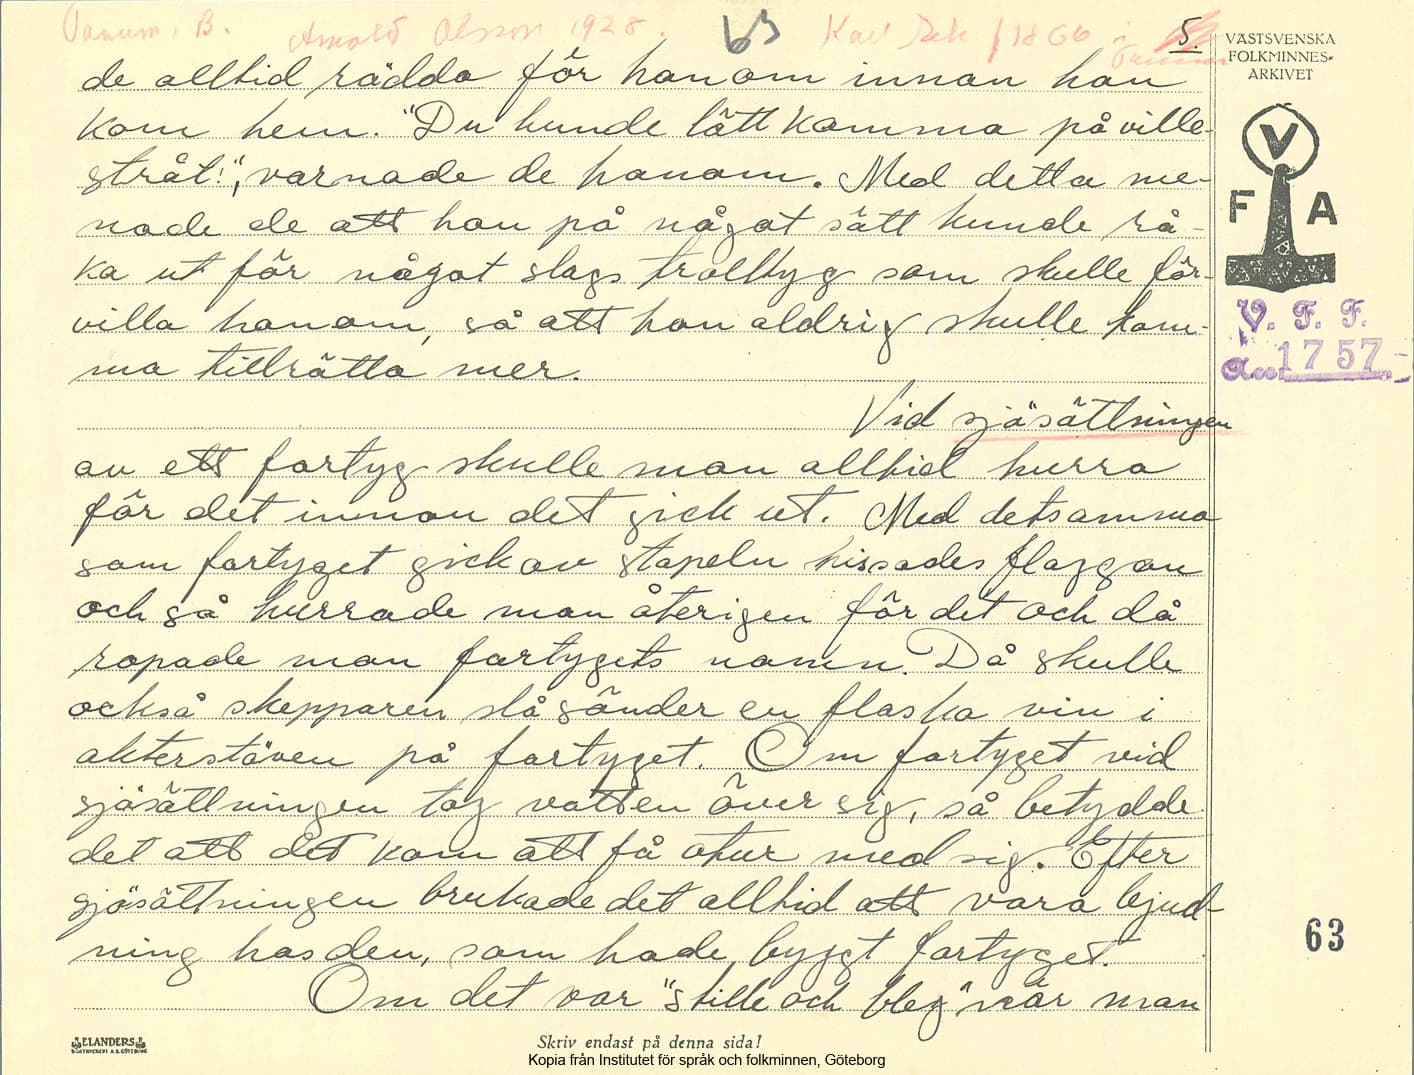 Arnold Olsson 1928. 63 Karl 1866 i 5.
VÄSTSVENSKA
FOLKMINNES-
ARKIVET
V
F A
V. F. F.
Acc. 1757
de alltid rädda för honom innan han
kom hem. "Du kunde lätt komma på ville-
stråt!", varnade de honom. Med detta me-
nade de att han på något sätt kunde rå-
ka ut för något slags trolltyg som skulle för-
villa honom, så att han aldrig skulle kom-
ma tillrätta mer.
Vid sjösättningen
av ett fartyg skulle man alltid hurra
för det innan det gick ut. Med detsamma
som fartyget gick av stapeln hissades flaggan
och så hurrade man återigen för det och då
ropade man fartygets namn. Då skulle
också skepparen slå sönder en flaska vin i
akterstäven på fartyget. Om fartyget vid
sjösättningen tog vatten över sig, så betydde
det att det kom att få otur med sig. Efter
sjösättningen brukade det alltid att vara bjud-
ning hos den, som hade byggt fartyget.
Om det var "stille och bleg" när man
63
ELANDERS
BOKTRYCKERI A.B. GÖTEBORG
Skriv endast på denna sida!
Kopia från Institutet för språk och folkminnen, Göteborg